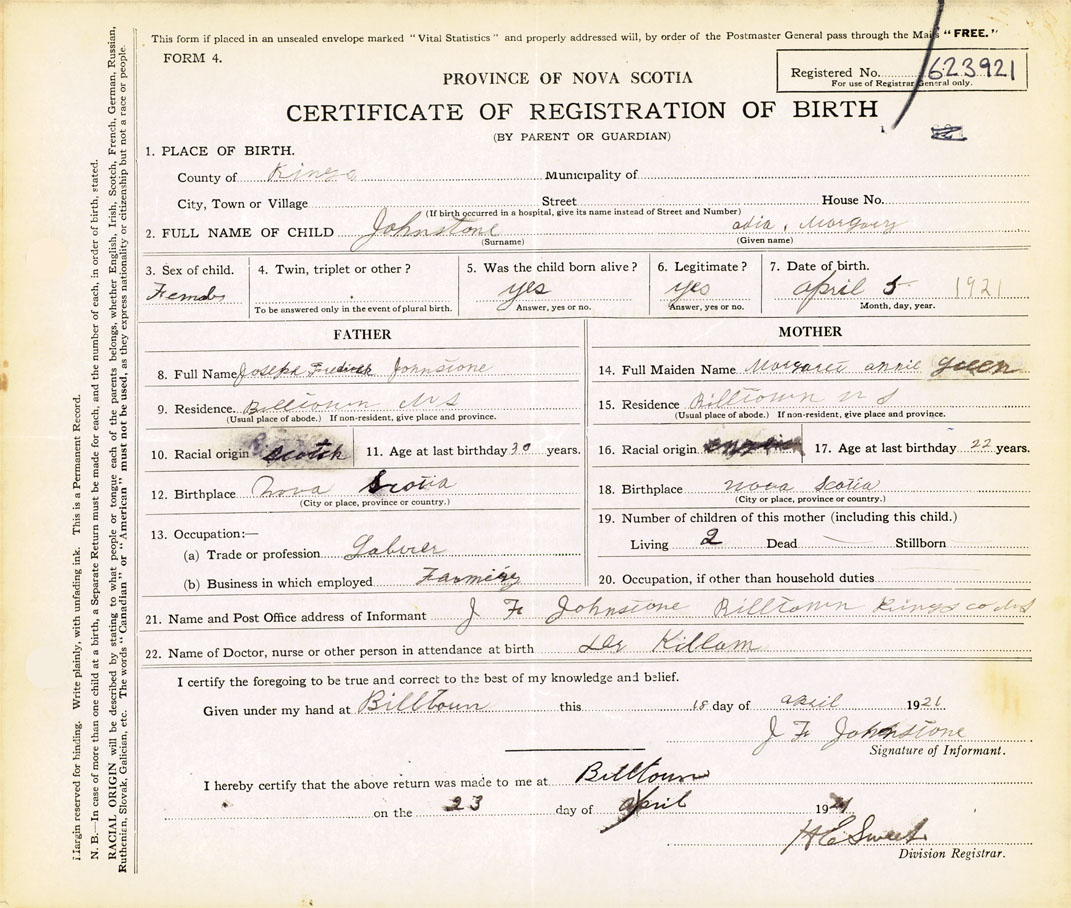 This form if placed in an unsealed envelope marked "Vital Statistics" and properly addressed will, by order of the Postmaster General pass through the Mails "FREE."
FORM 4.
Registered No. 623921
For use of Registrar General only.
PROVINCE OF NOVA SCOTIA
CERTIFICATE OF REGISTRATION OF BIRTH
(BY PARENT OR GUARDIAN)
1. PLACE OF BIRTH.
County of Kings Municipality of
City, Town or Village Street House No.
(If birth occurred in a hospital, give its name instead of Street and Number)
2. FULL NAME OF CHILD Johnstone adia, Margary
(Surname) (Given name)
3. Sex of child. 4. Twin, triplet or other? 5. Was the child born alive? 6. Legitimate? 7. Date of birth.
Female yes yes april 5 1921
To be answered only in the event of plural birth. Answer, yes or no. Answer, yes or no. Month, day, year.
FATHER
8. Full Name Joseph Fredrick Johnstone
9. Residence. Billtown N S
(Usual place of abode.) If non-resident, give place and province.
10. Racial origin Scotch 11. Age at last birthday 30 years.
12. Birthplace Nova Scotia
(City or place, province or country.)
13. Occupation:—
(a) Trade or profession Laborer
(b) Business in which employed Farming
MOTHER
14. Full Maiden Name Margaret annie Green
15. Residence Billtown N S
(Usual place of abode.) If non-resident, give place and province.
16. Racial origin 17. Age at last birthday 22 years.
18. Birthplace Nova Scotia
(City or place, province or country.)
19. Number of children of this mother (including this child.)
Living 2 Dead Stillborn
20. Occupation, if other than household duties
21. Name and Post Office address of Informant J F Johnstone Billtown Kings co N S
22. Name of Doctor, nurse or other person in attendance at birth Dr Killam
I certify the foregoing to be true and correct to the best of my knowledge and belief.
Given under my hand at Billtown this 18 day of april 1921
J F Johnstone
Signature of Informant.
I hereby certify that the above return was made to me at Billtown
on the 23 day of april 1921
H E Sweet
Division Registrar.
Margin reserved for binding. Write plainly, with unfading ink. This is a Permanent Record.
N. B.—In case of more than one child at a birth, a Separate Return must be made for each, and the number of each, in order of birth, stated.
RACIAL ORIGIN will be described by stating to what people or tongue each of the parents belongs, whether English, Irish, Scotch, French, German, Russian,
Ruthenian, Slovak, Galician, etc. The words "Canadian" or "American" must not be used, as they express nationality or citizenship but not a race or people.